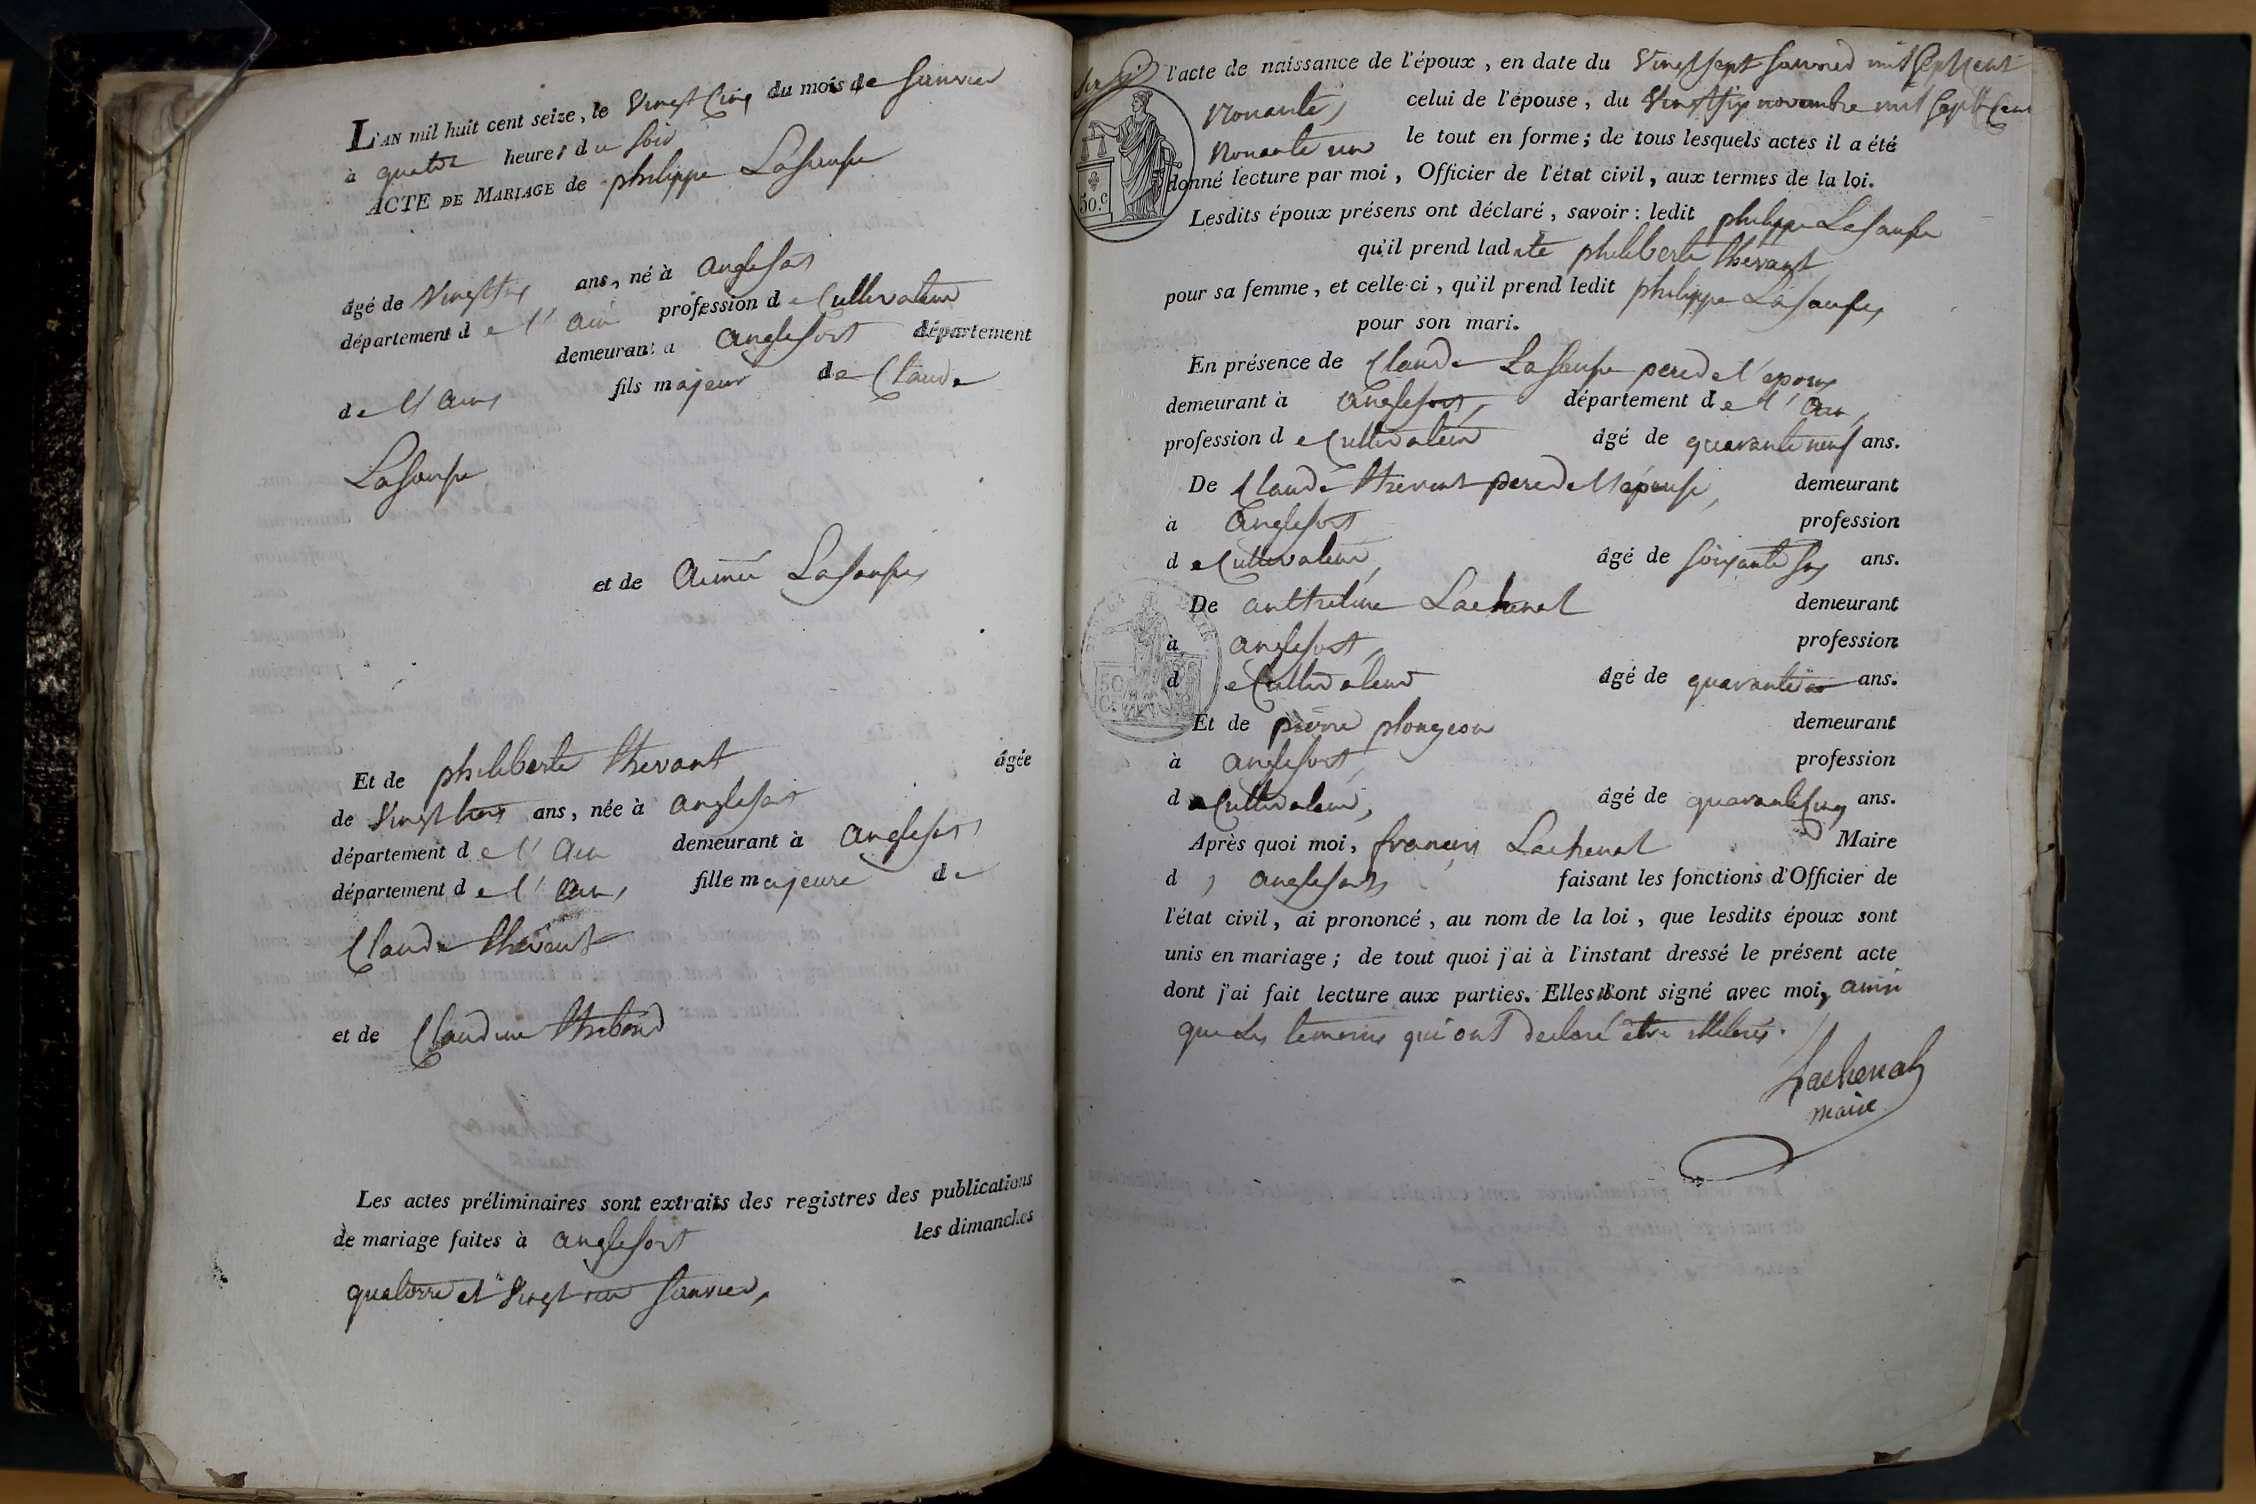 L'AN mil huit cent seize, le Vingt Cinq du mois de Janvier
à quatre heures du soir
ACTE DE MARIAGE de philippe Lasausse
âgé de Vingt six ans, né à anglefort
département de l'ain profession de Cultivateur
demeurant a anglefort département
de l'ain, fils majeur de Claude
Lasausse
et de aimée Lasausse
Et de philiberte thevant âgée
de Vingt trois ans, née à anglefort
département de l'ain demeurant à anglefort
département de l'ain, fille majeure de
Claude thevent
et de Claudine
Les actes préliminaires sont extraits des registres des publications
de mariage faites à anglefort les dimanches
quatorze et vingt un Janvier,
l'acte de naissance de l'époux, en date du Vingt sept Janvier mil sept cent
nonante, celui de l'épouse, du Vingt six novembre mil sept cent
nonante un le tout en forme; de tous lesquels actes il a été
50.c donné lecture par moi, Officier de l'état civil, aux termes de la loi.
Lesdits époux présens ont déclaré, savoir: ledit philippe Lasausse
qu'il prend ladite philiberte thevant
pour sa femme, et celle-ci, qu'il prend ledit philippe Lasausse,
pour son mari.
En présence de Claude Lasausse pere de l'époux
demeurant à anglefort, département de l'ain,
profession de Cultivateur âgé de quarante neuf ans.
De Claude thevent pere de l'épouse, demeurant
à anglefort profession
de Cultivateur, âgé de soixante six ans.
De anthelme Lachenal demeurant
à anglefort, profession
de Cultivateur âgé de quarante ans.
Et de pierre plongeon demeurant
à anglefort, profession
de Cultivateur, âgé de quarante cinq ans.
Après quoi moi, françois Lachenal Maire
d'anglefort, faisant les fonctions d'Officier de
l'état civil, ai prononcé, au nom de la loi, que lesdits époux sont
unis en mariage; de tout quoi j'ai à l'instant dressé le présent acte
dont j'ai fait lecture aux parties. Elles n'ont signé avec moi, ainsi
que les temoins qui ont declaré être illiterés.
Lachenal
maire